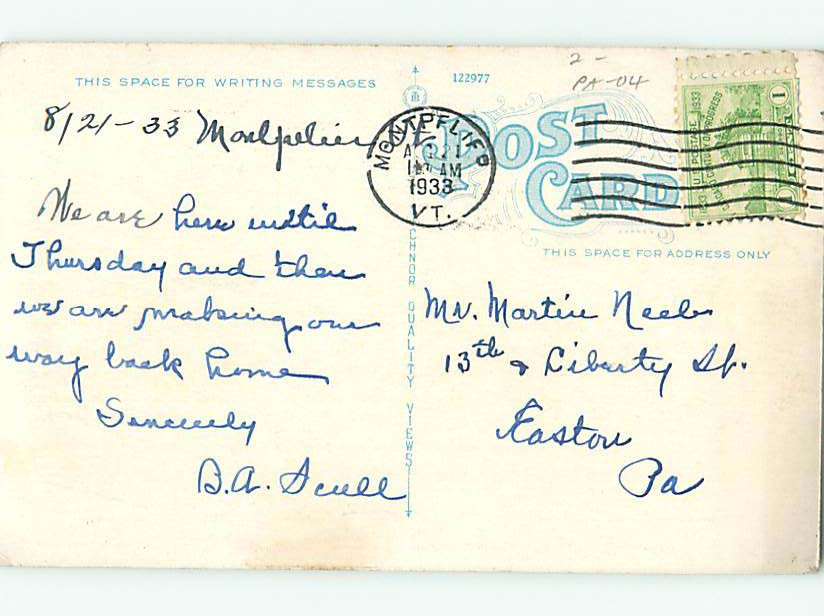 THIS SPACE FOR WRITING MESSAGES
122977
2 -
PA-04
8/21-33 Montpelier Vt.
MONTPELIER
AUG 21
AM
1933
VT.
POST
CARD
U.S. POSTAGE
1833 1933
A CENTURY OF PROGRESS
1
THIS SPACE FOR ADDRESS ONLY
We are here until
Thursday and then
we are making our
way back home
Sincerely
B.A. Scull
TICHNOR QUALITY VIEWS
Mr. Martin Neeb
13th & Liberty St.
Easton
Pa